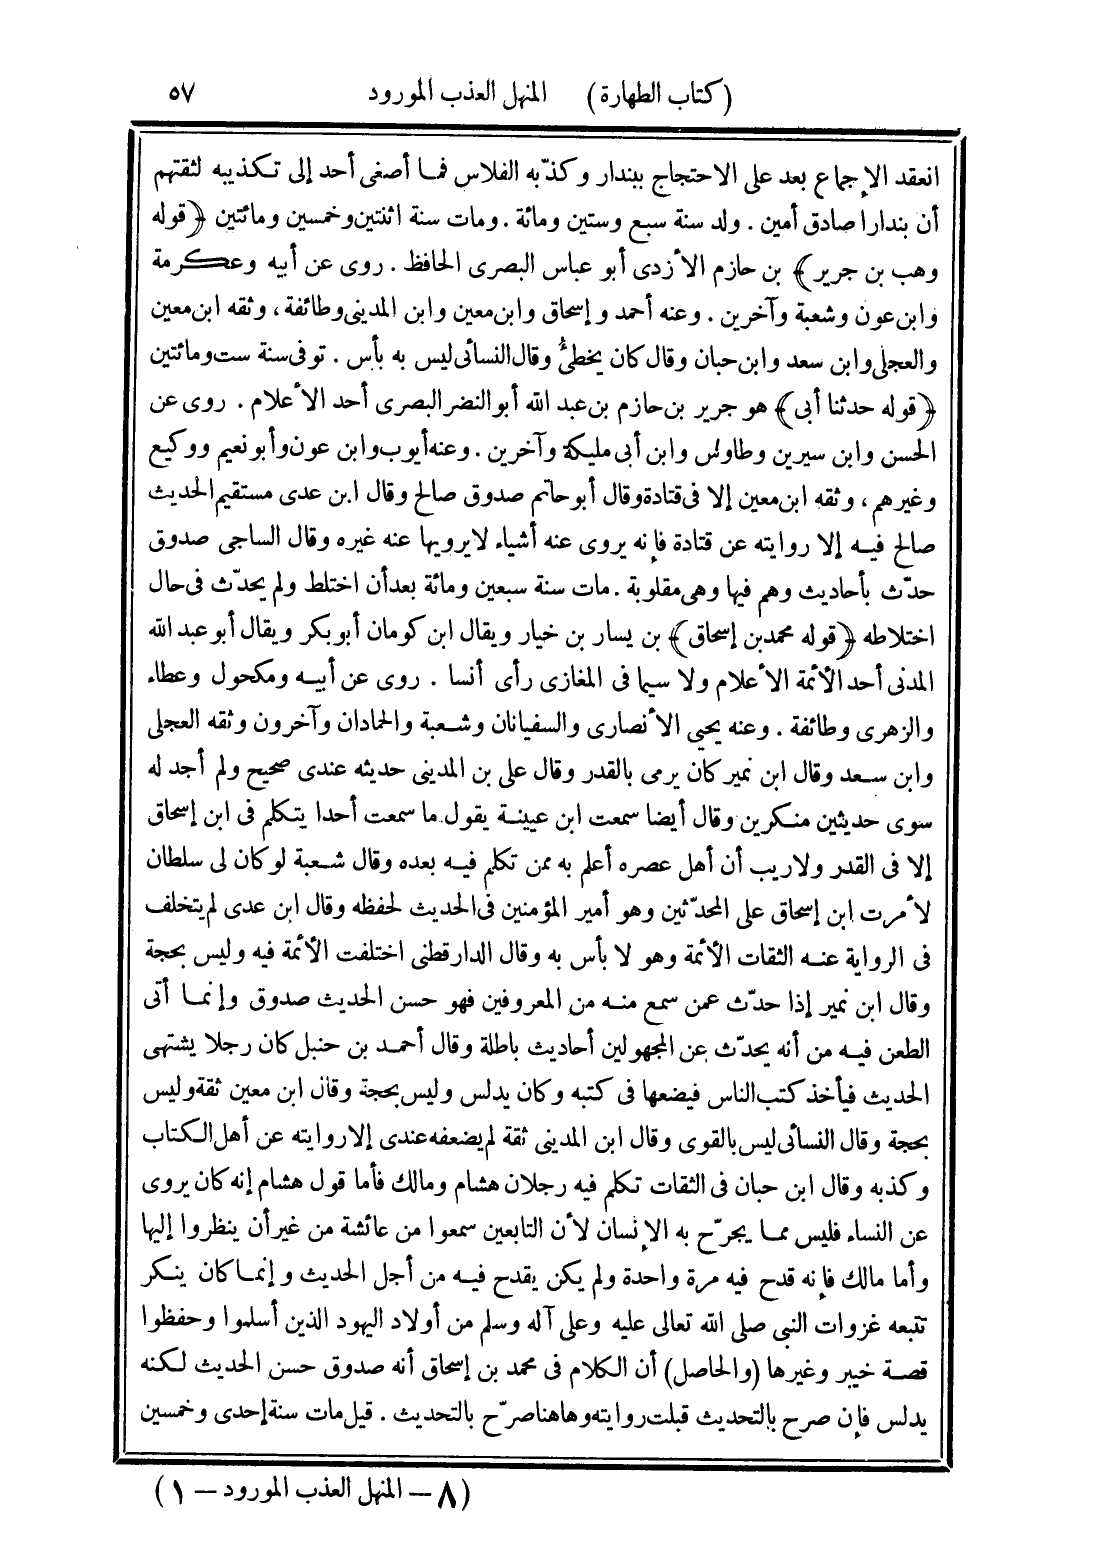 (كتاب الطهارة) المنهل العذب المورود ٥٧
انعقد الإجماع بعد على الاحتجاج ببندار وكذّبه الفلاس فمـا أصغى أحد إلى تكذيبه لثقتهم
أن بندارا صادق أمين . ولد سنة سبع وستين ومائة . ومات سنة اثنتين وخمسين ومائتين ﴿قوله
وهب بن جرير﴾ بن حازم الأزدى أبو عباس البصرى الحافظ . روى عن أبيه وعكرمة
وابن عون وشعبة وآخرين . وعنه أحمد وإسحاق وابن معين وابن المدينى وطائفة ، وثقه ابن معين
والعجلى وابن سعد وابن حبان وقال كان يخطئ وقال النسائى ليس به بأس . توفى سنة ست ومائتين
﴿قوله حدثنا أبى﴾ هو جرير بن حازم بن عبد الله أبو النضر البصرى أحد الأعلام . روى عن
الحسن وابن سيرين وطاوس وابن أبى مليكة وآخرين . وعنه أيوب وابن عون وأبو نعيم ووكيع
وغيرهم ، وثقه ابن معين إلا فى قتادة وقال أبو حاتم صدوق صالح وقال ابن عدى مستقيم الحديث
صالح فيه إلا روايته عن قتادة فإنه يروى عنه أشياء لا يرويها عنه غيره وقال الساجى صدوق
حدّث بأحاديث وهم فيها وهى مقلوبة . مات سنة سبعين ومائة بعد أن اختلط ولم يحدّث فى حال
اختلاطه ﴿قوله محمد بن إسحاق﴾ بن يسار بن خيار ويقال ابن كومان أبو بكر ويقال أبو عبد الله
المدنى أحد الأئمة الأعلام ولا سيما فى المغازى رأى أنسا . روى عن أبيه ومكحول وعطاء
والزهرى وطائفة . وعنه يحيى الأنصارى والسفيانان وشعبة والحمادان وآخرون وثقه العجلى
وابن سعد وقال ابن نمير كان يرمى بالقدر وقال على بن المدينى حديثه عندى صحيح ولم أجد له
سوى حديثين منكرين وقال أيضا سمعت ابن عيينة يقول ما سمعت أحدا يتكلم فى ابن إسحاق
إلا فى القدر ولا ريب أن أهل عصره أعلم به ممن تكلم فيه بعده وقال شعبة لو كان لى سلطان
لأمرت ابن إسحاق على المحدّثين وهو أمير المؤمنين فى الحديث لحفظه وقال ابن عدى لم يتخلف
فى الرواية عنه الثقات الأئمة وهو لا بأس به وقال الدارقطنى اختلفت الأئمة فيه وليس بحجة
وقال ابن نمير إذا حدّث عمن سمع منه من المعروفين فهو حسن الحديث صدوق وإنمـا أتى
الطعن فيه من أنه يحدّث عن المجهولين أحاديث باطلة وقال أحمد بن حنبل كان رجلا يشتهى
الحديث فيأخذ كتب الناس فيضعها فى كتبه وكان يدلس وليس بحجة وقال ابن معين ثقة وليس
بحجة وقال النسائى ليس بالقوى وقال ابن المدينى ثقة لم يضعفه عندى إلا روايته عن أهل الكتاب
وكذبه وقال ابن حبان فى الثقات تكلم فيه رجلان هشام ومالك فأما قول هشام إنه كان يروى
عن النساء فليس ممـا يجرّح به الإنسان لأن التابعين سمعوا من عائشة من غير أن ينظروا إليها
وأما مالك فإنه قدح فيه مرة واحدة ولم يكن يقدح فيه من أجل الحديث وإنمـا كان ينكر
تتبعه غزوات النبى صلى الله تعالى عليه وعلى آله وسلم من أولاد اليهود الذين أسلموا وحفظوا
قصة خيبر وغيرها (والحاصل) أن الكلام فى محمد بن إسحاق أنه صدوق حسن الحديث لكنه
يدلس فإن صرح بالتحديث قبلت روايته وهاهنا صرّح بالتحديث . قيل مات سنة إحدى وخمسين
(٨ – المنهل العذب المورود – ١)